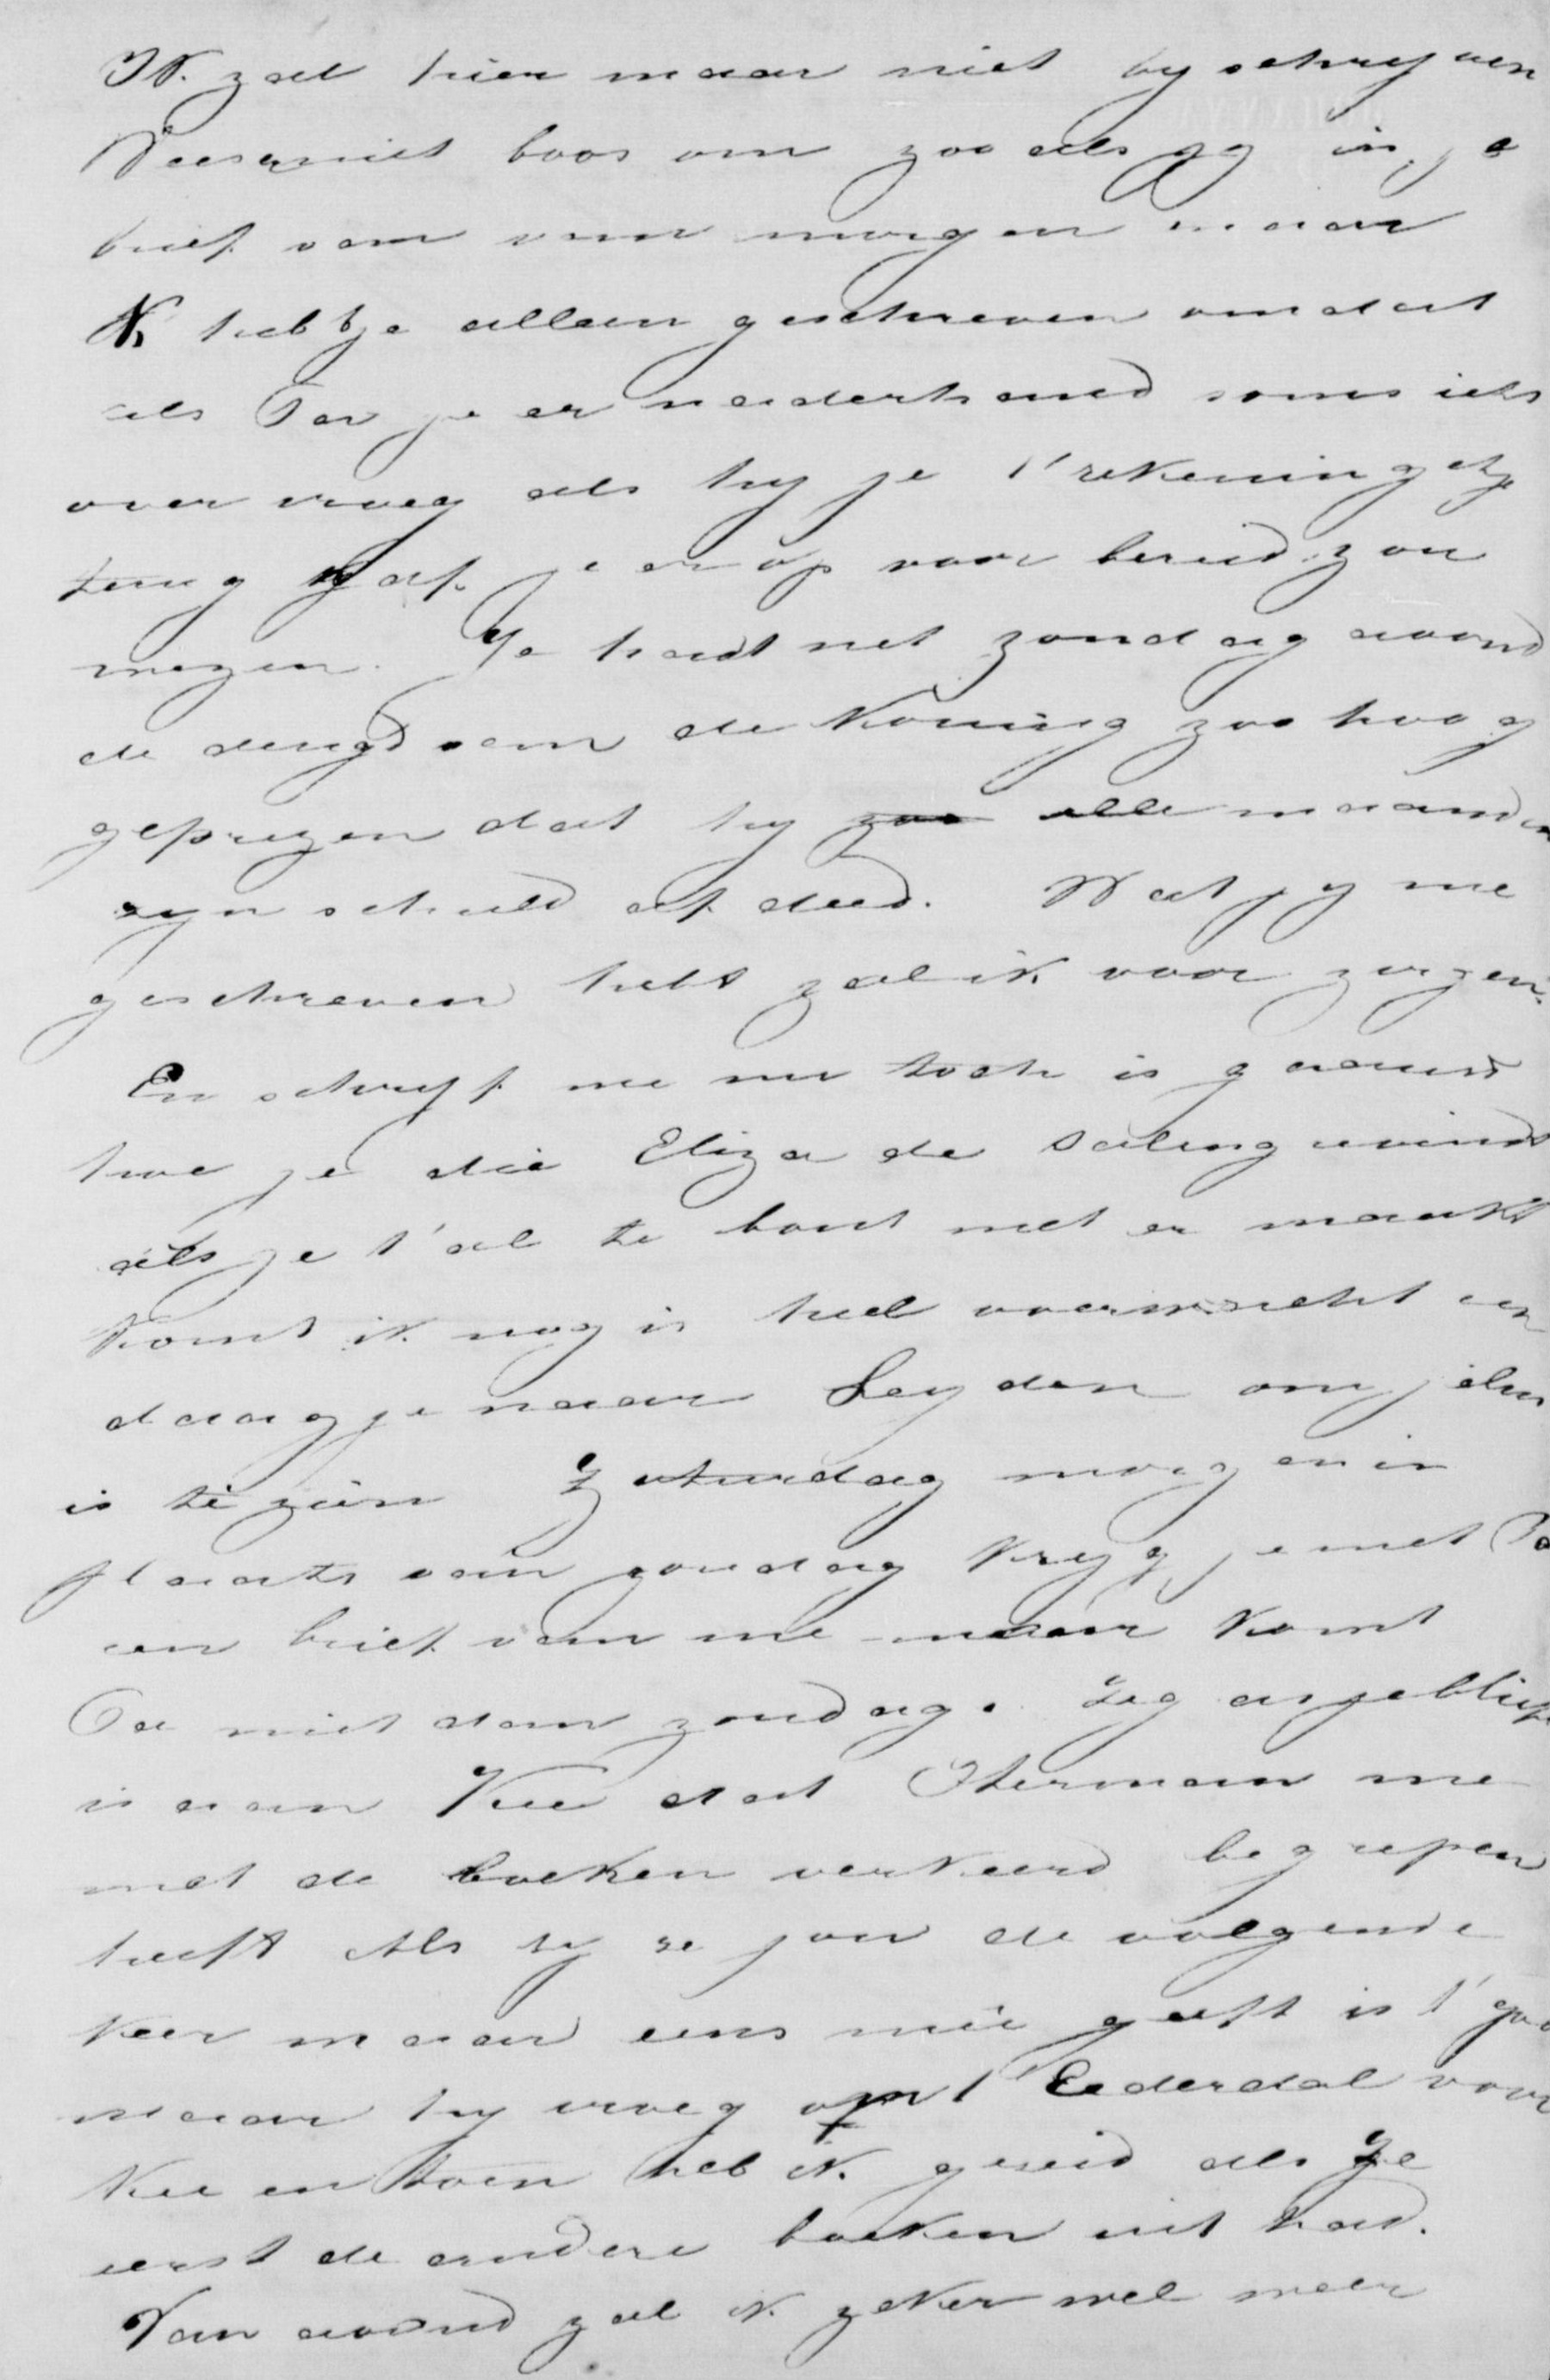 Ik zal hier maar niet by schryven
Wees niet boos om zoo als jy in je
brief van van morgen maar
Ik heb je alleen geschreven omdat
als Pa je er naderhand soms iets
over vroeg als hy je t'rekeningetje
terug gaf je er op voor bereid zou
wezen. Je hadt net zondag avond
de deugd van de Koning zoo hoog
geprezen dat hy zoo alle maanden
zyn schuld af deed. Wat jy me
geschreven hebt zal ik voor zorgen.
En schryf me nu toch is gaauw
hoe je die Eliza de vindt
als je t'al te bont met er maakt
komt ik nog is heel onverwacht een
daagje naar Leyden om jelui
is te zien Zaturdag morgen in
plaats van zondag kryg je met Pa
een brief van me maar komt
Pa niet dan zondag. Zeg asjeblieft
is aan Kee dat Herman me
met de boeken verkeerd begrepen
heeft Als zy ze jou de volgende
keer maar eens meê geeft is t'goed
maar hy vroeg om t' Eederdal voor
Kee en toen heb ik gezeid als ze
eerst de andere boeken uit had.
Van avond zal ik zeker wel meer